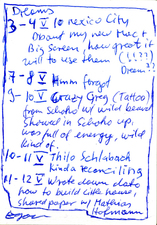 Dreams
3-4 V 10 nexico City
Doont my new mac +
Big Screen, how great it
will to use them (!!??)
Dream??
7-8 V Humm forgot
9-10 V Crazy Greg (Tattoo)
from Schoko w/ wild beard
showed in Schoko up,
was full of energy, wild
kind of.
10-11 V Thilo Schlabach
kinda reconciling
11-12 V Wrote down data
how to build little house,
shared paper w/ Mathias
Hofmann